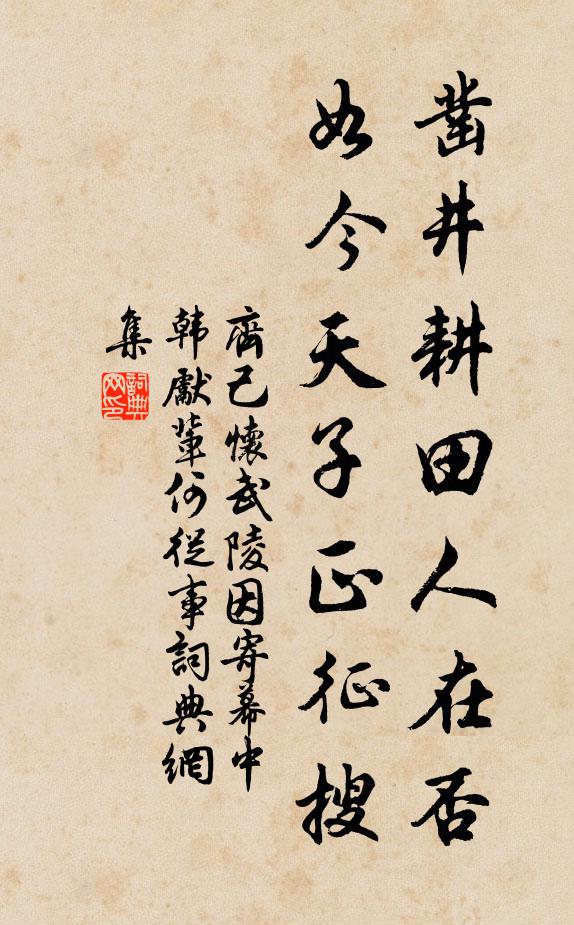 凿井耕田人在否
如今天子正征搜
齊己懷武陵因寄幕中
韩獻輩何從事詞典網
集
詞典
网印